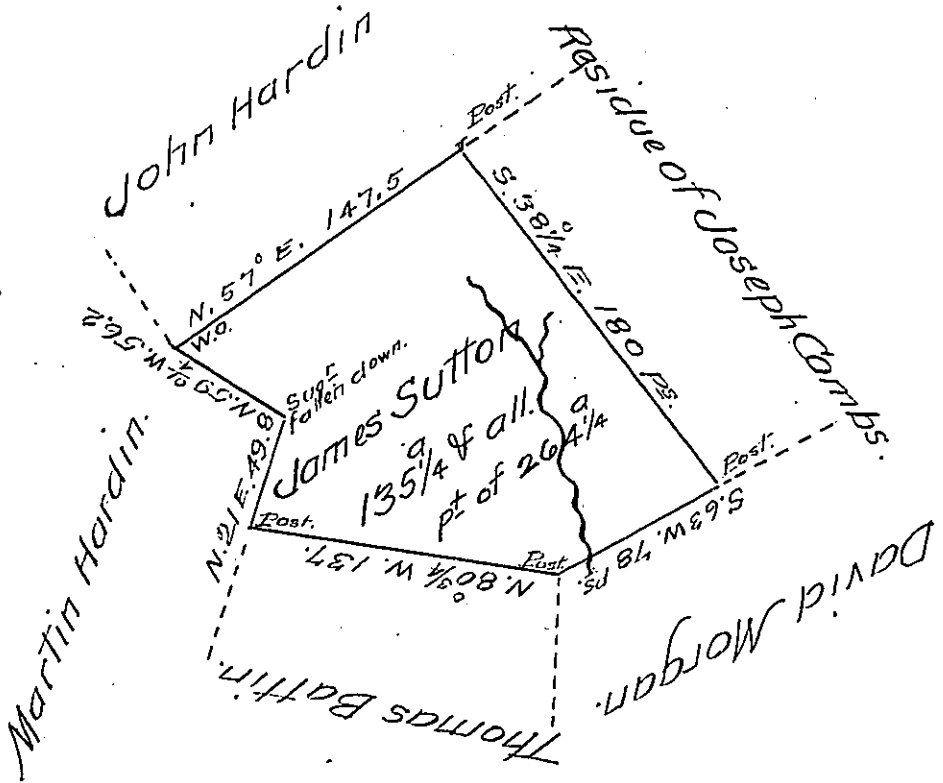 John Hardin
Residue of Joseph Combs.
Post.
N. 57° E. 147.5
S. 38¼° E. 180 ps.
W.O.
N. 59¾ W. 56.2
Sugr
fallen down.
James Sutton
135¼ a & all.
pt of 264¼ a
N. 21 E. 49.8
Post.
N. 80¾° W. 137.
Post
Post.
S. 63 W. 78 ps.
Martin Hardin.
Thomas Battin.
David Morgan.